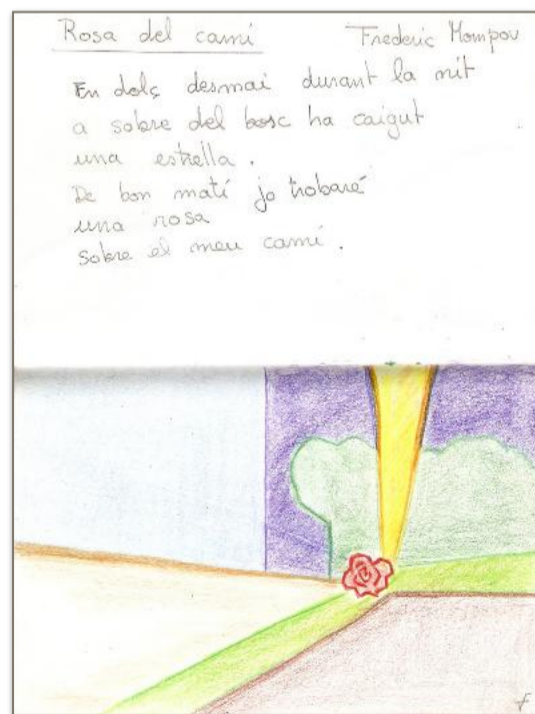 Rosa del camí Frederic Mompou
En dolç desmai durant la nit
a sobre del bosc ha caigut
una estrella.
De bon matí jo trobaré
una rosa
sobre el meu camí.
F